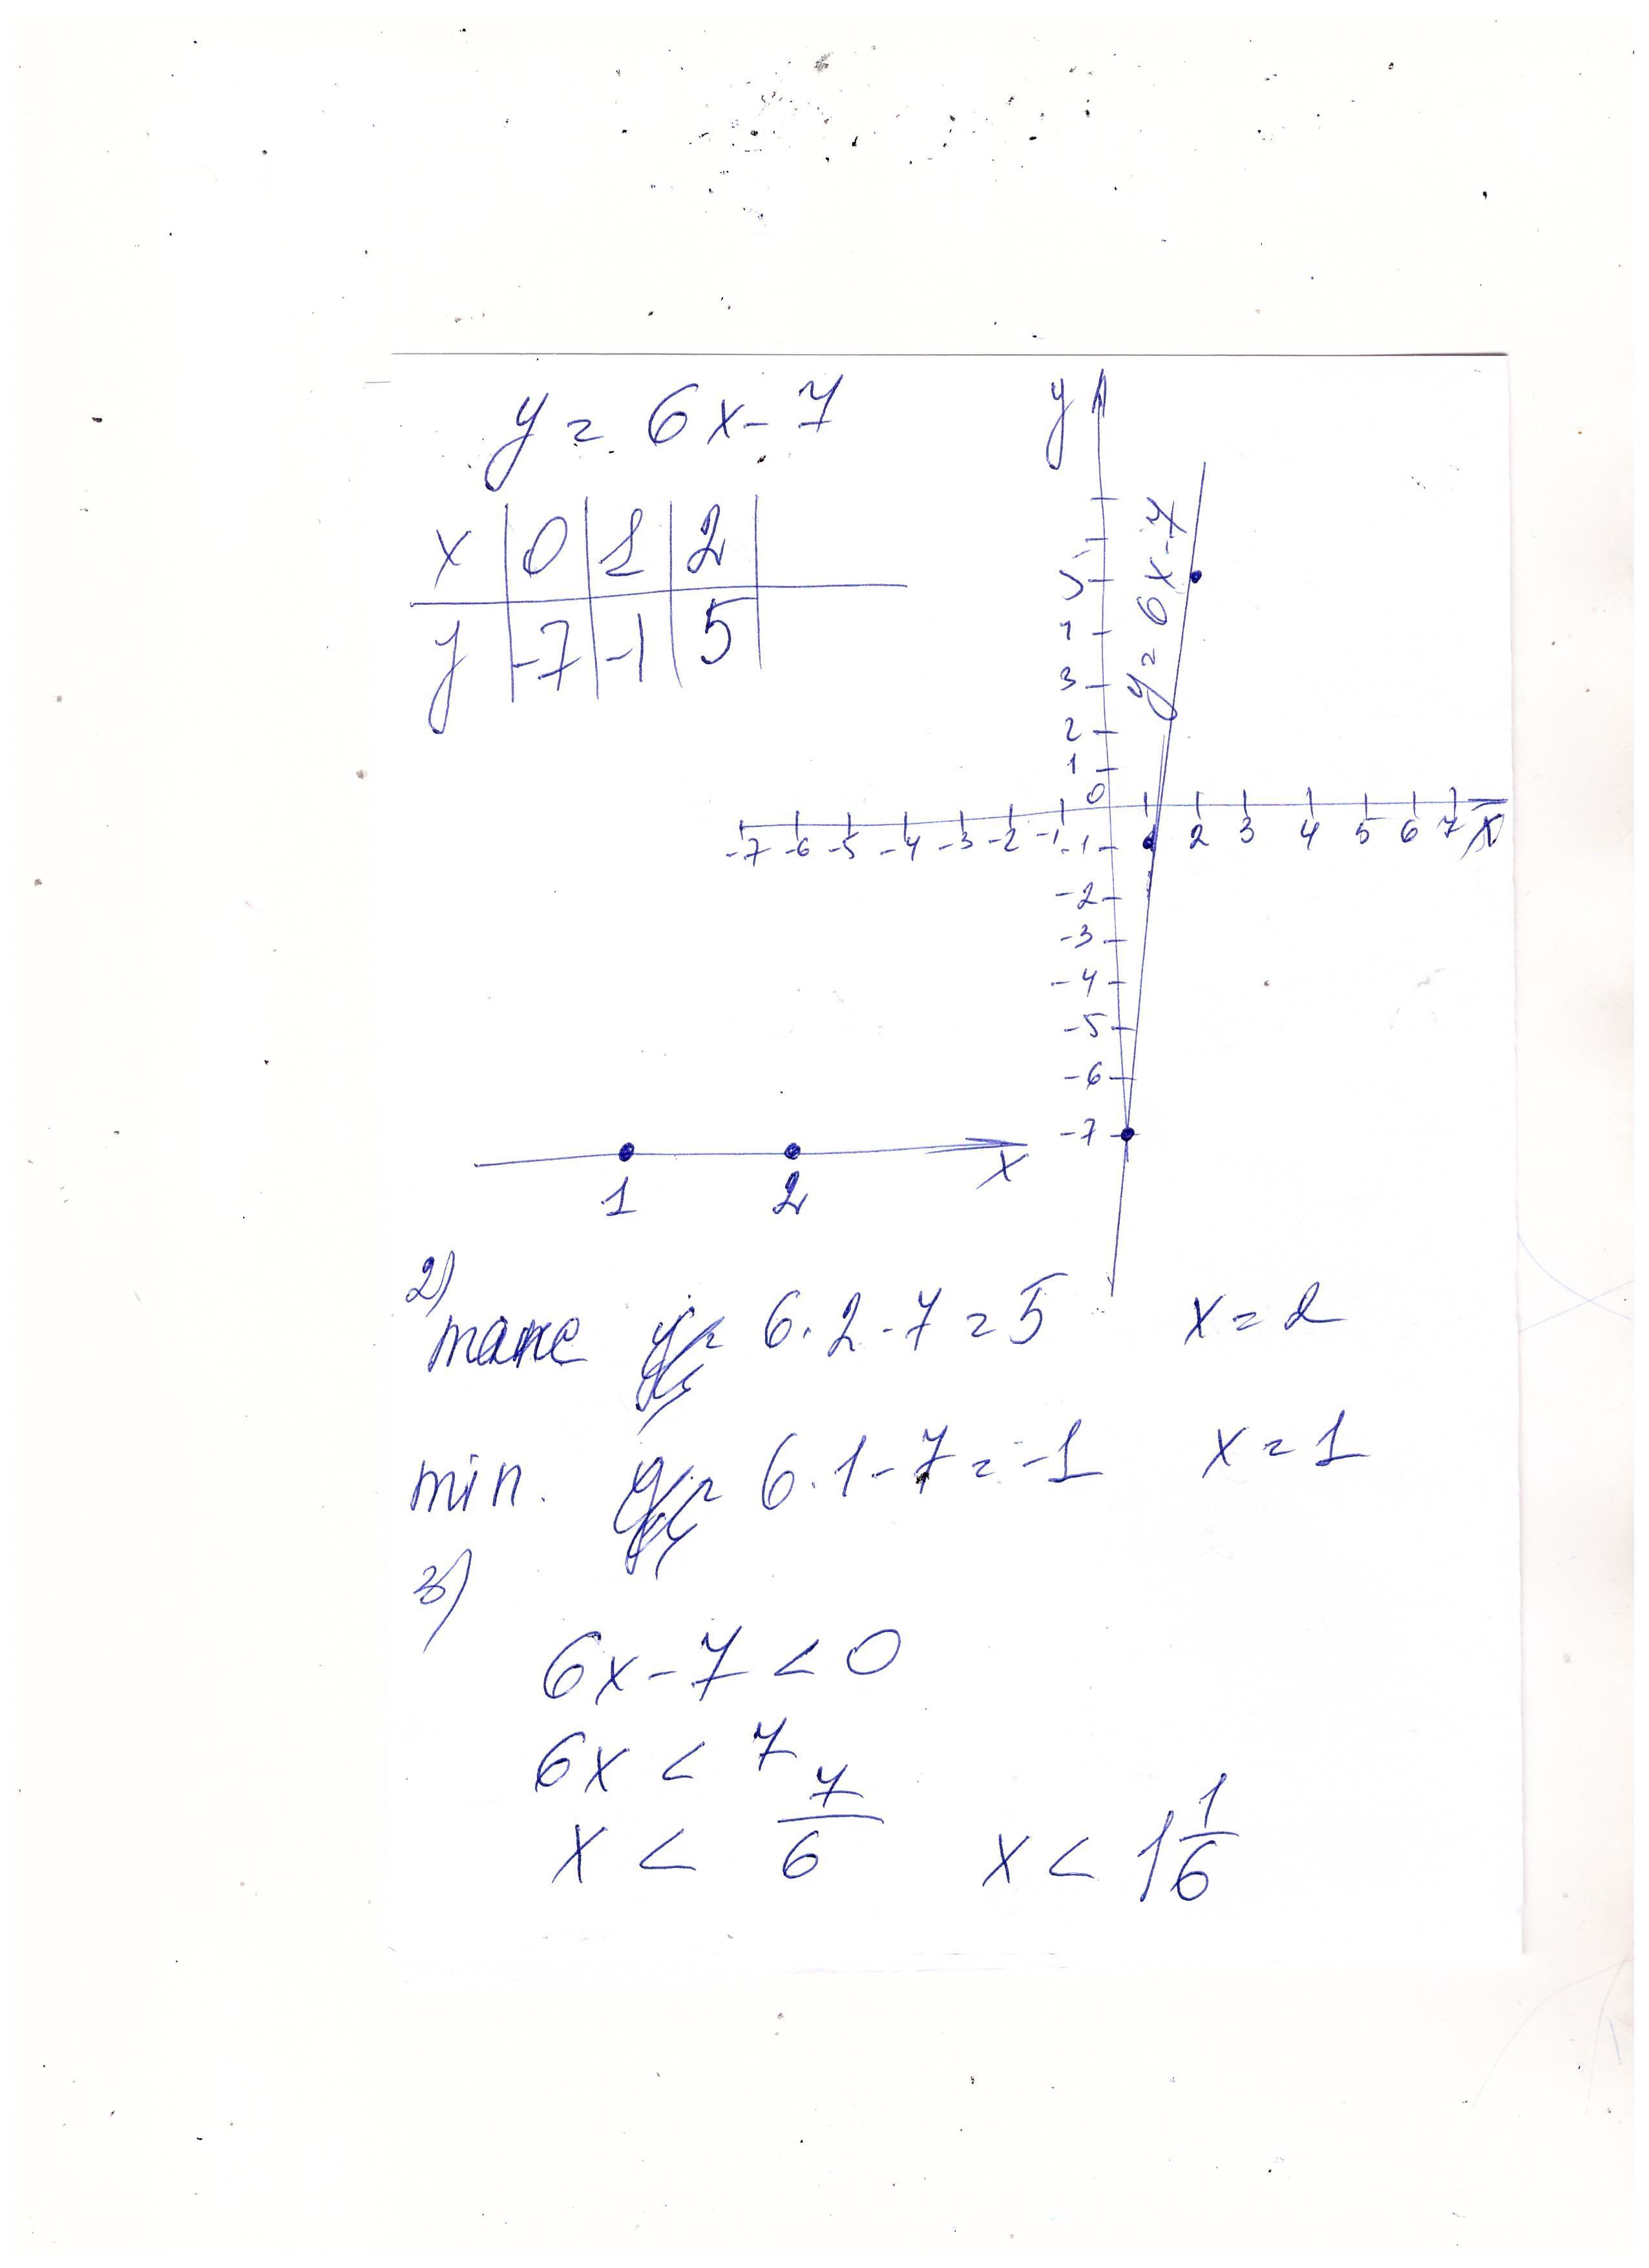 y = 6x - 7
x | 0 | 1 | 2
y | -7 | -1 | 5
y
y = 6x-7
5
3
2
1
0
-7 -6 -5 -4 -3 -2 -1 1 2 3 4 5 6 7 x
-1
-2
-3
-4
-5
-6
-7
1 2 x
2)
макс y = 6·2-7=5 x=2
min. y = 6·1-7=-1 x=1
3)
6x-7<0
6x<7
x < 7/6 x < 1 1/6